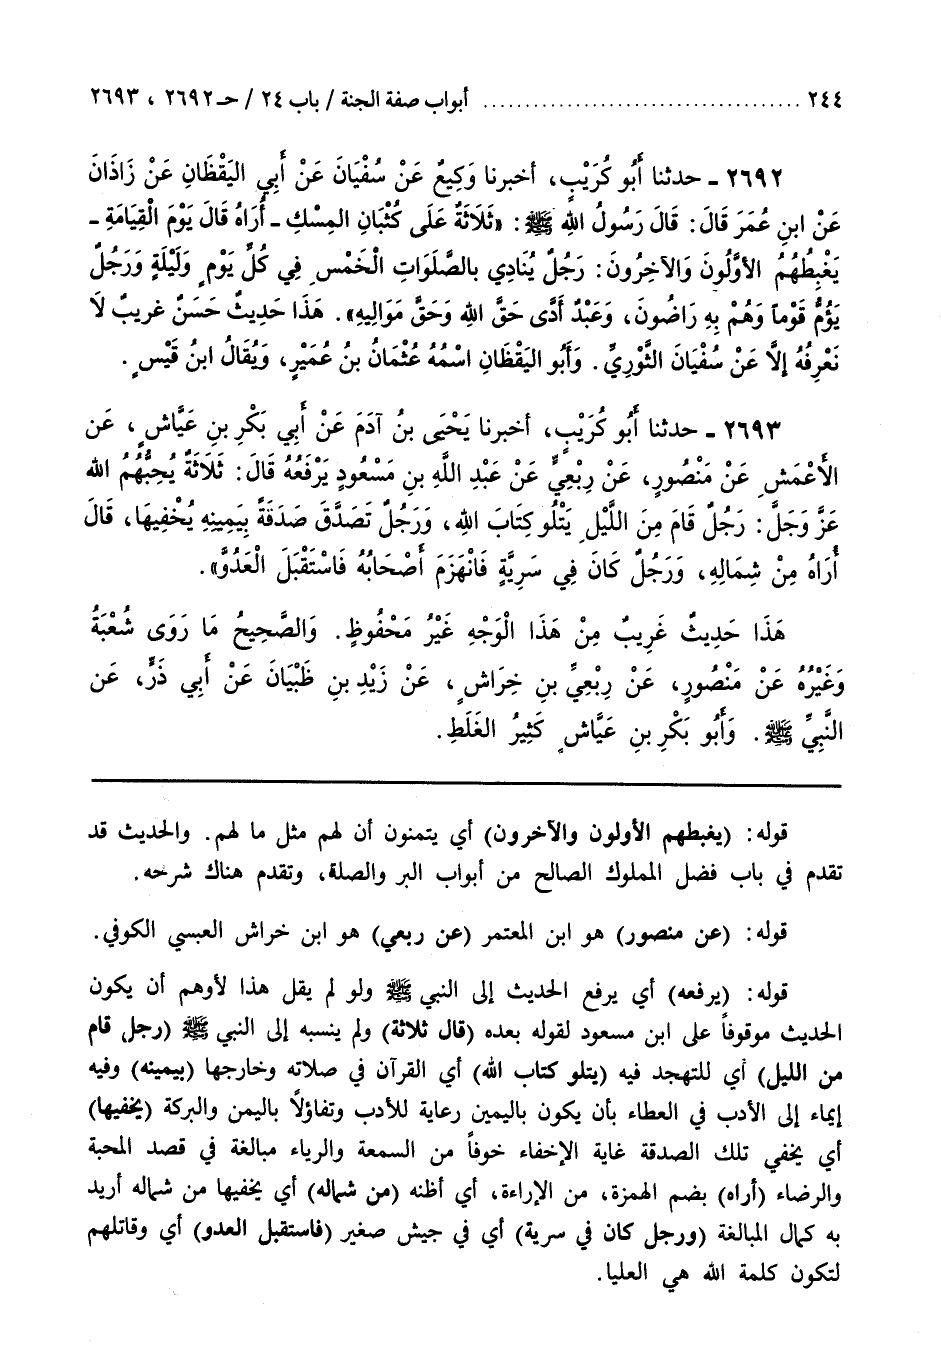 ٢٤٤ ...................................... أبواب صفة الجنة / باب ٢٤ / حـ ٢٦٩٢ ، ٢٦٩٣
٢٦٩٢ ـ حدثنا أَبُو كُرَيْبٍ، أخبرنا وَكِيعٌ عَنْ سُفْيَانَ عَنْ أَبِي اليَقْظَانِ عَنْ زَاذَانَ
عَنْ ابنِ عُمَرَ قَالَ: قَالَ رَسُولُ اللهِ ﷺ: «ثَلَاثَةٌ عَلَى كُثْبَانِ المِسْكِ ـ أُرَاهُ قَالَ يَوْمَ الْقِيَامَةِ ـ
يَغْبِطُهُمُ الأَوَّلُونَ وَالآخِرُونَ: رَجُلٌ يُنَادِي بالصَّلَوَاتِ الْخَمْسِ فِي كُلِّ يَوْمٍ وَلَيْلَةٍ وَرَجُلٌ
يَؤُمُّ قَوْماً وَهُمْ بِهِ رَاضُونَ، وَعَبْدٌ أَدَّى حَقَّ اللهِ وَحَقَّ مَوَالِيهِ». هَذَا حَدِيثٌ حَسَنٌ غريبٌ لَا
نَعْرِفُهُ إلَّا عَنْ سُفْيَانَ الثَّوْرِيِّ. وَأَبُو اليَقْظَانِ اسْمُهُ عُثْمَانُ بنُ عُمَيْرٍ، وَيُقَالُ ابنُ قَيْسٍ.
٢٦٩٣ ـ حدثنا أَبُو كُرَيْبٍ، أخبرنا يَحْيَى بنُ آدَمَ عَنْ أَبِي بَكْرِ بنِ عَيَّاشٍ، عَن
الأَعْمَشِ عَنْ مَنْصُورٍ، عَنْ رِبْعِيٍّ عَنْ عَبْدِ اللَّهِ بنِ مَسْعُودٍ يَرْفَعُهُ قَالَ: ثَلَاثَةٌ يُحِبُّهُمُ اللهُ
عَزَّ وَجَلَّ: رَجُلٌ قَامَ مِنَ اللَّيْلِ يَتْلُو كِتَابَ اللهِ، وَرَجُلٌ تَصَدَّقَ صَدَقَةً بِيَمِينِهِ يُخْفِيهَا، قَالَ
أُرَاهُ مِنْ شِمَالِهِ، وَرَجُلٌ كَانَ فِي سَرِيَّةٍ فَانْهَزَمَ أَصْحَابُهُ فَاسْتَقْبَلَ الْعَدُوَّ».
هَذَا حَدِيثٌ غَرِيبٌ مِنْ هَذَا الْوَجْهِ غَيْرُ مَحْفُوظٍ. وَالصَّحِيحُ مَا رَوَى شُعْبَةُ
وَغَيْرُهُ عَنْ مَنْصُورٍ، عَنْ رِبْعِيِّ بنِ خِرَاشٍ، عَنْ زَيْدِ بنِ ظَبْيَانَ عَنْ أَبِي ذَرٍّ، عَن
النَّبِيِّ ﷺ. وَأَبُو بَكْرِ بنِ عَيَّاشٍ كَثِيرُ الغَلَطِ.
قوله: (يغبطهم الأولون والآخرون) أي يتمنون أن لهم مثل ما لهم. والحديث قد
تقدم في باب فضل المملوك الصالح من أبواب البر والصلة، وتقدم هناك شرحه.
قوله: (عن منصور) هو ابن المعتمر (عن ربعي) هو ابن خراش العبسي الكوفي.
قوله: (يرفعه) أي يرفع الحديث إلى النبي ﷺ ولو لم يقل هذا لأوهم أن يكون
الحديث موقوفاً على ابن مسعود لقوله بعده (قال ثلاثة) ولم ينسبه إلى النبي ﷺ (رجل قام
من الليل) أي للتهجد فيه (يتلو كتاب الله) أي القرآن في صلاته وخارجها (بيمينه) وفيه
إيماء إلى الأدب في العطاء بأن يكون باليمين رعاية للأدب وتفاؤلاً باليمن والبركة (يخفيها)
أي يخفي تلك الصدقة غاية الإخفاء خوفاً من السمعة والرياء مبالغة في قصد المحبة
والرضاء (أراه) بضم الهمزة، من الإراءة، أي أظنه (من شماله) أي يخفيها من شماله أريد
به كمال المبالغة (ورجل كان في سرية) أي في جيش صغير (فاستقبل العدو) أي وقاتلهم
لتكون كلمة الله هي العليا.